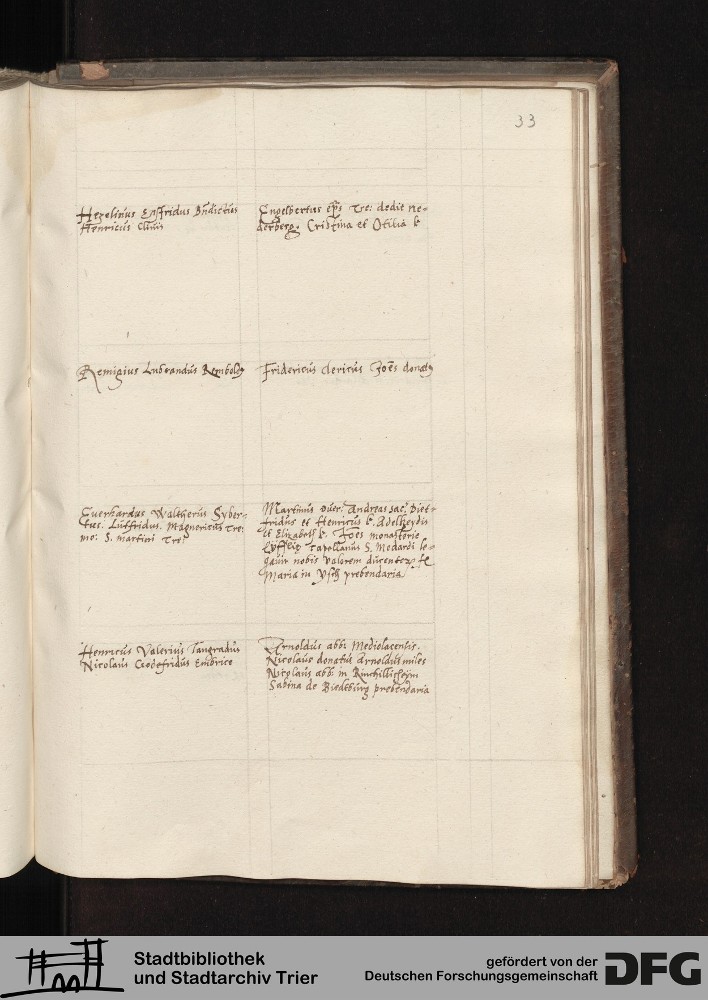 33
Hezelinus Erffridus Bndictus
Henricus Clunis
Engelbertus eps Tre: dedit ne-
derberg. Cristina et Otilia b
Remigius Lubrandus Rembold
Fridericus clericus Joes donatg
Euerhardus Waltherus Syber-
tus. Lutfridus. Magnericus Tre:
mo: S. martini Tre:
Martinus Andreas sac. Diet-
fridus et Henricus b. Adelheydis
et Elizabeth b. Joes monasterie
Capellanus S. Medardi le-
gauit nobis valorem ducentor fl
Maria in prebendaria
Henricus Valerius Tangradus
Nicolaus Godefridus Embrico
Arnoldus abb. Mediolacensis.
Nicolaus donatus Arnoldus miles
Nicolaus abb. in
Sabina de Biedburg prebendaria
Stadtbibliothek
und Stadtarchiv Trier
gefördert von der
Deutschen Forschungsgemeinschaft
DFG